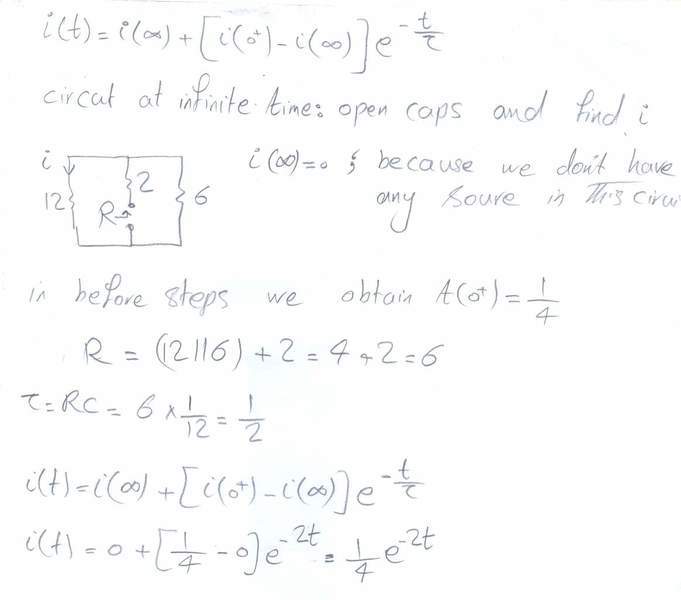 i(t) = i(∞) + [i(0⁺) - i(∞)] e^{-t/τ}
circat at infinite time: open caps and find i
i(∞) = 0 ; because we don't have
any soure in This circui
i
12
2
R
6
in before steps we obtain A(0⁺) = 1/4
R = (12||6) + 2 = 4 + 2 = 6
τ = RC = 6 × 1/12 = 1/2
i(t) = i(∞) + [i(0⁺) - i(∞)] e^{-t/τ}
i(t) = 0 + [1/4 - 0] e^{-2t} = 1/4 e^{-2t}